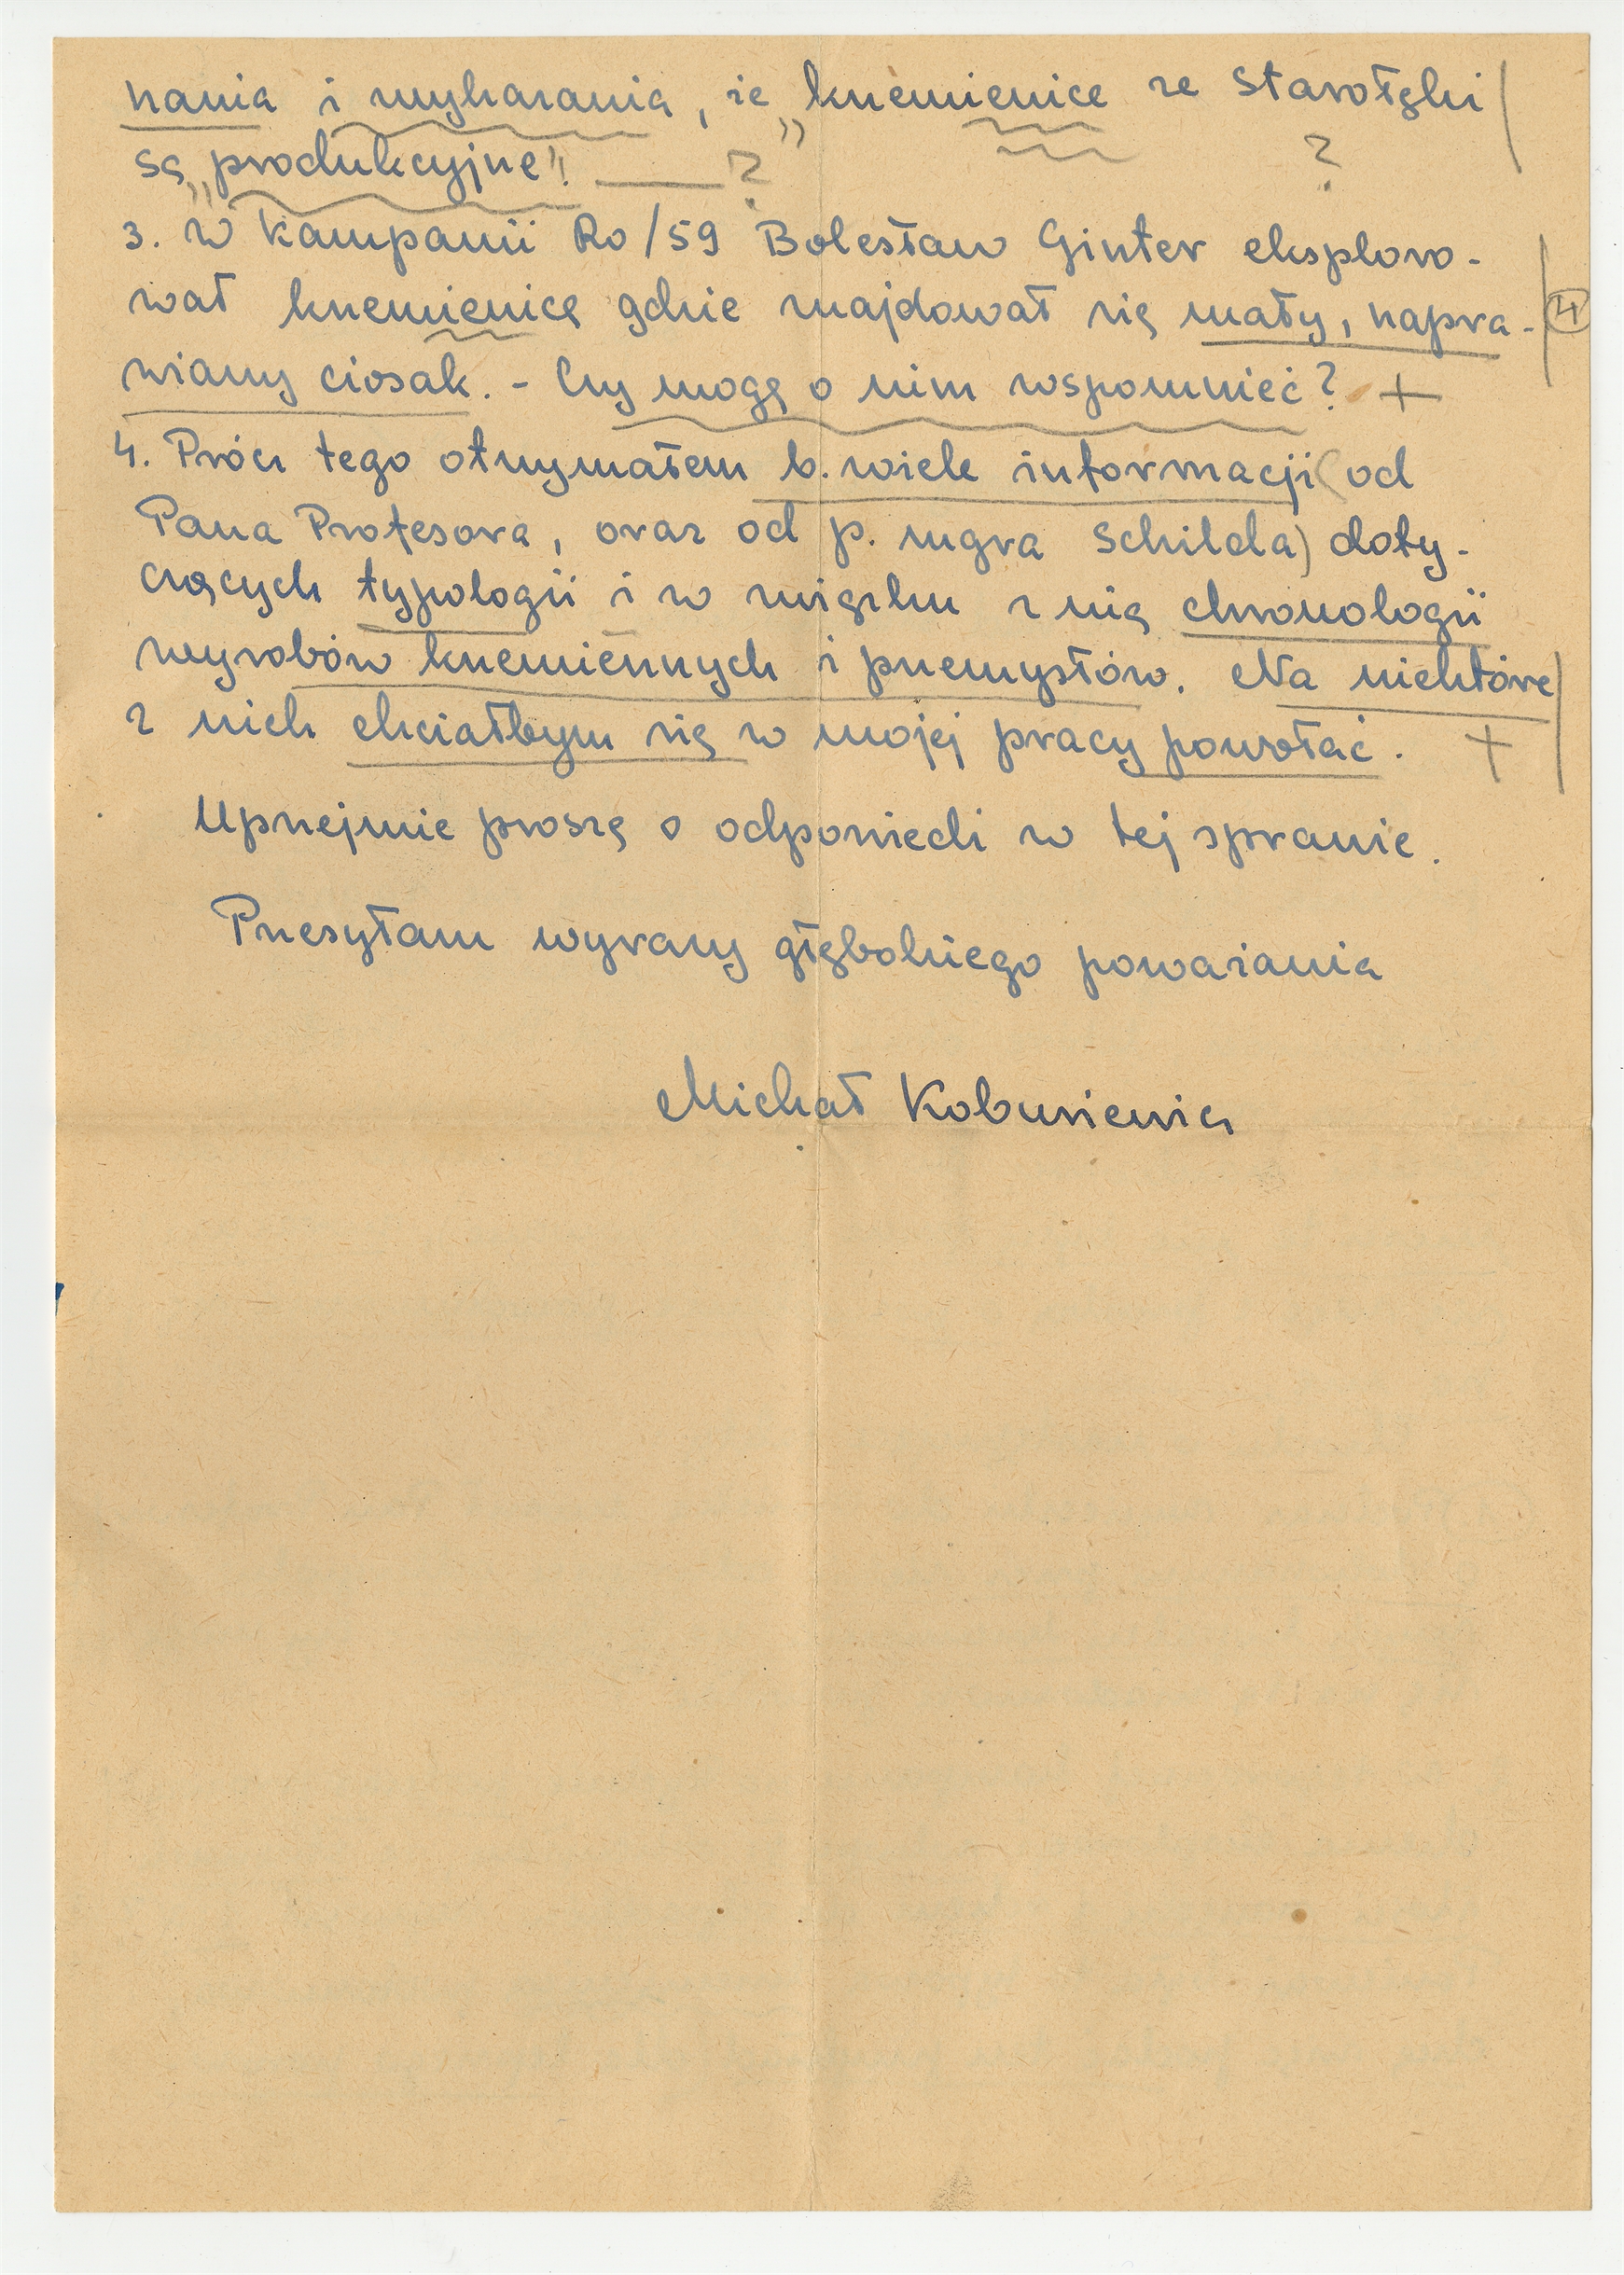 nania i wykazania, że „krzemienice ze Starołęki
są „produkcyjne"! — ?
?
3. W kampanii Ro/59 Bolesław Ginter eksploro-
wał krzemienicę gdzie znajdował się mały, napra-
4
wiany ciosak. - Czy mogę o nim wspomnieć? +
4. Prócz tego otrzymałem b. wiele informacji (od
Pana Profesora, oraz od p. mgra Schilda) doty-
czących typologii i w związku z nią chronologii
wyrobów krzemiennych i przemysłów. Na niektóre
z nich chciałbym się w mojej pracy powołać. +
Uprzejmie proszę o odpowiedź w tej sprawie.
Przesyłam wyrazy głębokiego poważania
Michał Kobusiewicz